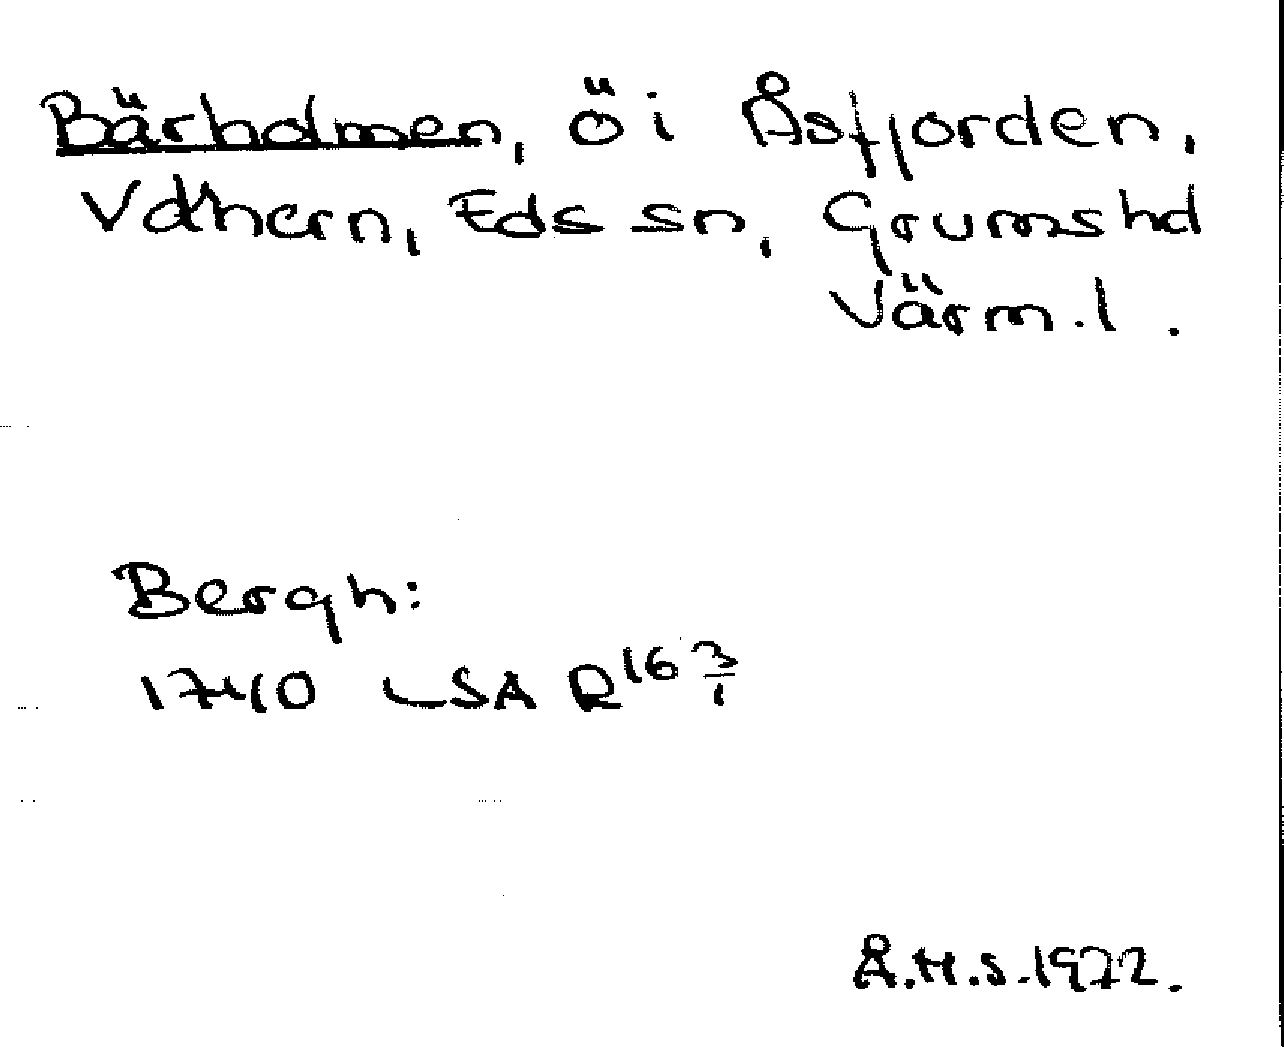 Bärholmen, ö i Åsfjorden,
Vänern, Eds sn, Grums hd
Värml.
Bergh:
1740 LSA R16 3/1
Å.H.S. 1972.